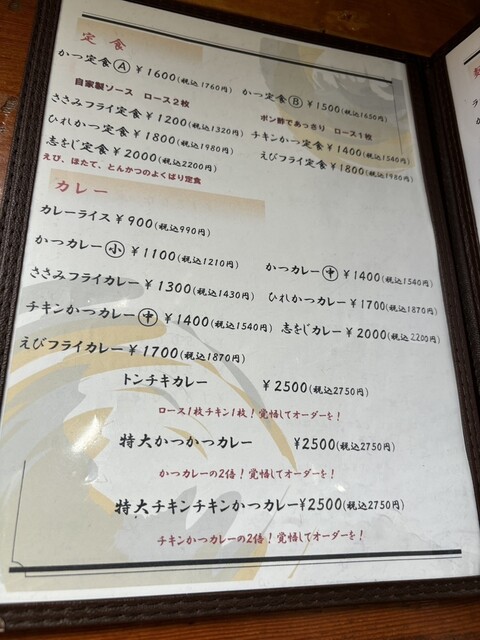 定食
かつ定食Ⓐ ¥1600(税込1760円) かつ定食Ⓑ ¥1500(税込1650円)
自家製ソース ロース2枚 ポン酢であっさり ロース1枚
ささみフライ定食 ¥1200(税込1320円) チキンかつ定食 ¥1400(税込1540円)
ひれかつ定食 ¥1800(税込1980円) えびフライ定食 ¥1800(税込1980円)
志をじ定食 ¥2000(税込2200円)
えび、ほたて、とんかつのよくばり定食
カレー
カレーライス ¥900(税込990円)
かつカレー㊥ ¥1400(税込1540円)
かつカレー小 ¥1100(税込1210円)
ささみフライカレー ¥1300(税込1430円) ひれかつカレー ¥1700(税込1870円)
チキンかつカレー㊥ ¥1400(税込1540円) 志をじカレー ¥2000(税込2200円)
えびフライカレー ¥1700(税込1870円)
トンチキカレー ¥2500(税込2750円)
ロース1枚チキン1枚！覚悟してオーダーを！
特大かつかつカレー ¥2500(税込2750円)
かつカレーの2倍！覚悟してオーダーを！
特大チキンチキンかつカレー ¥2500(税込2750円)
チキンかつカレーの2倍！覚悟してオーダーを！